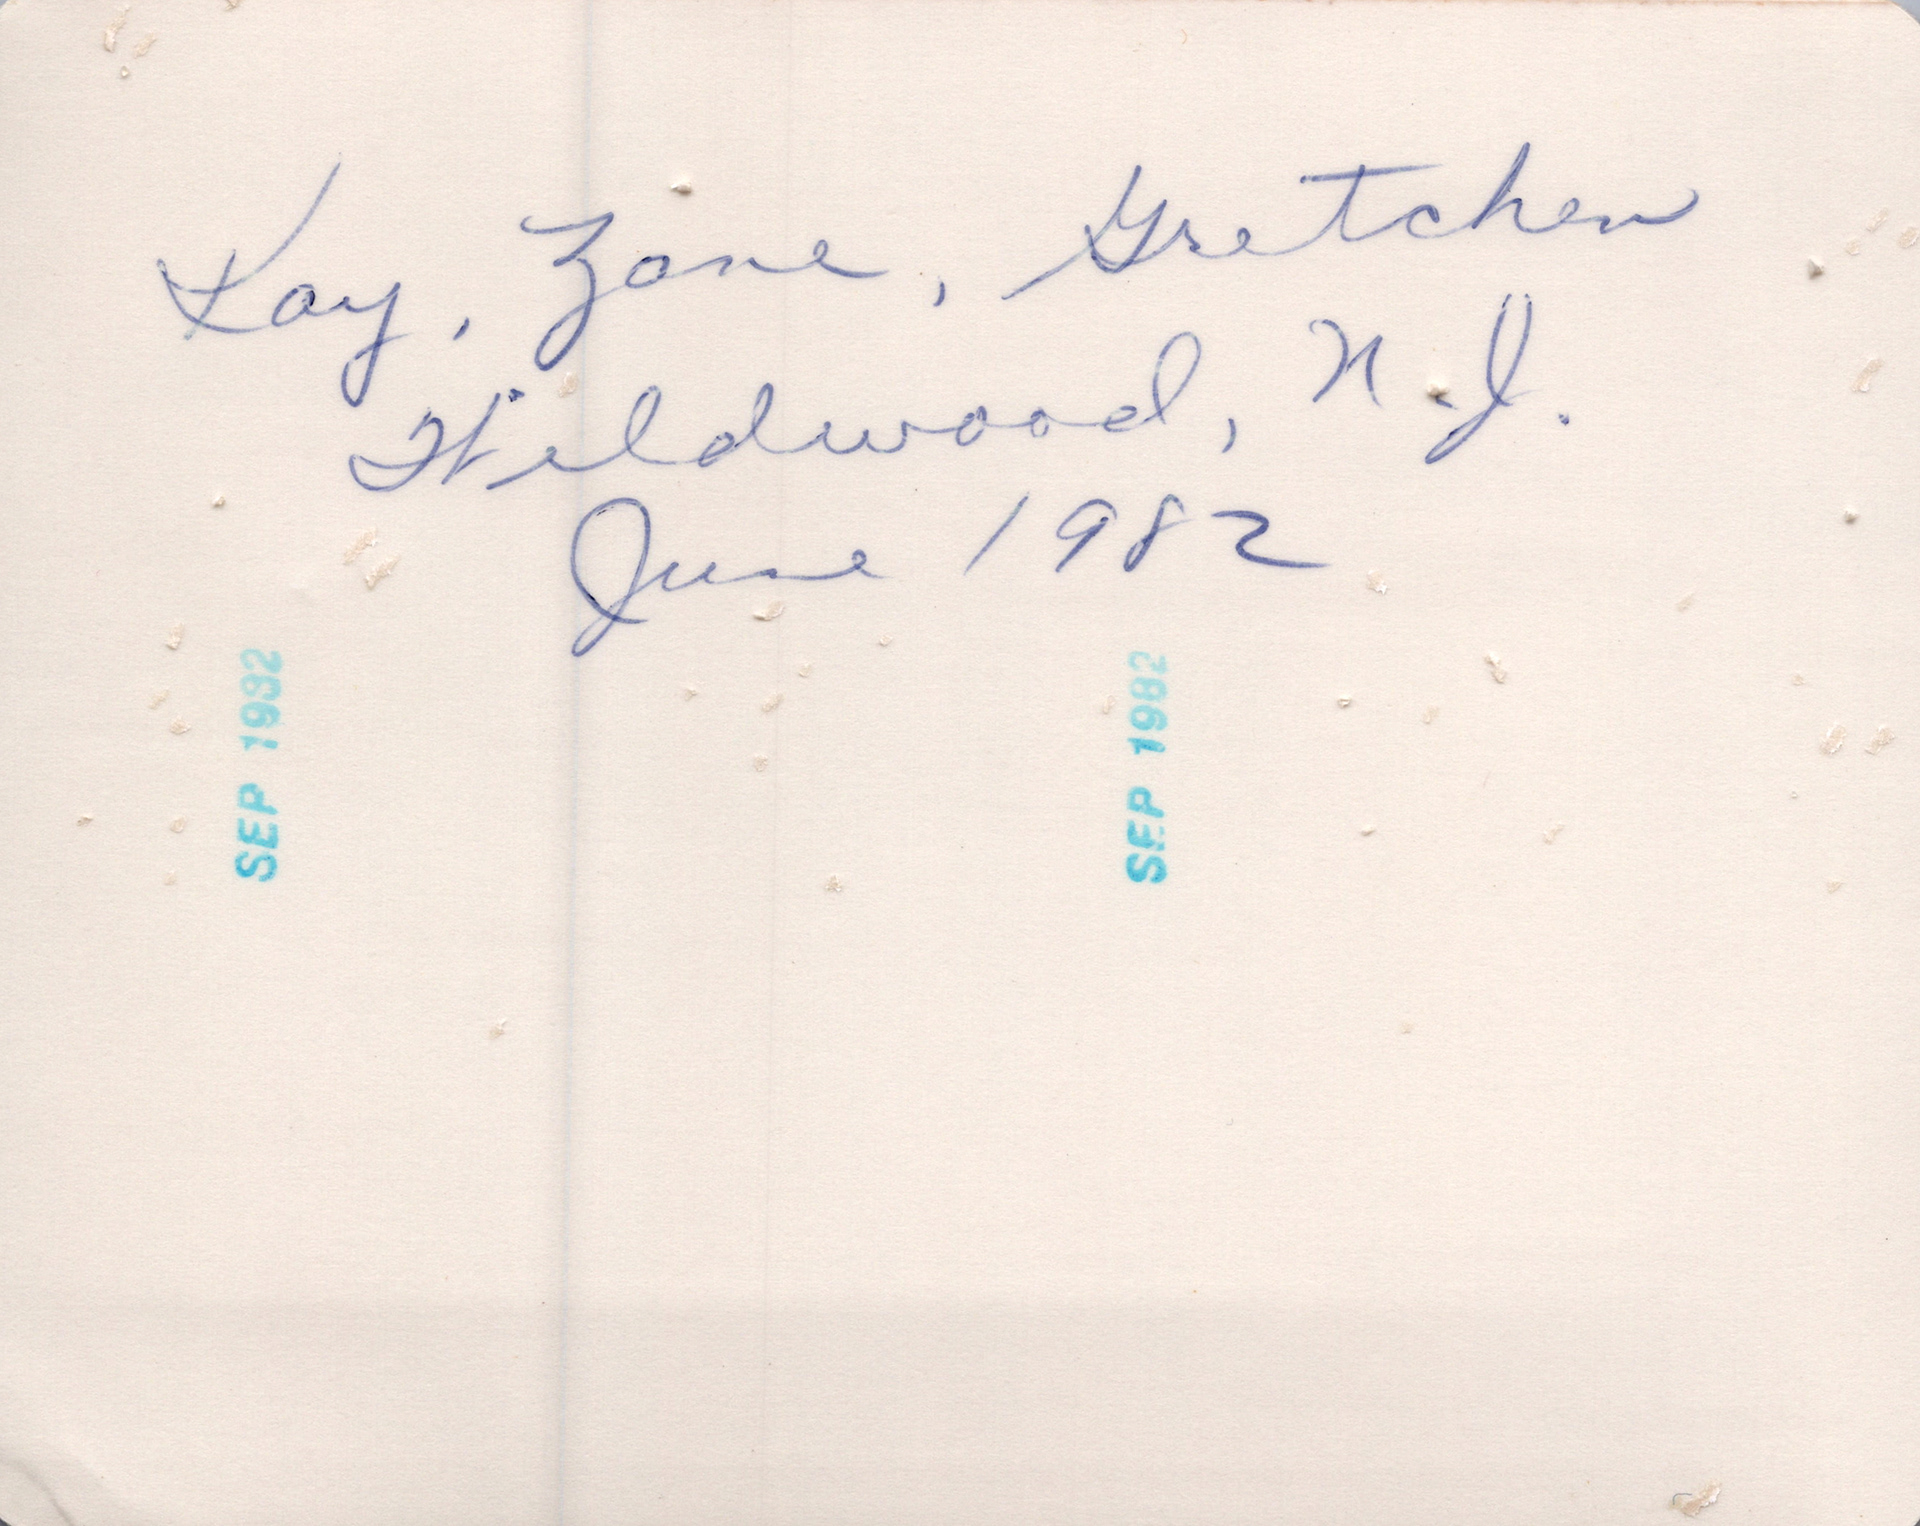 Kay, Zane, Gretchen
Wildwood, N.J.
June 1982
SEP 1982
SEP 1982